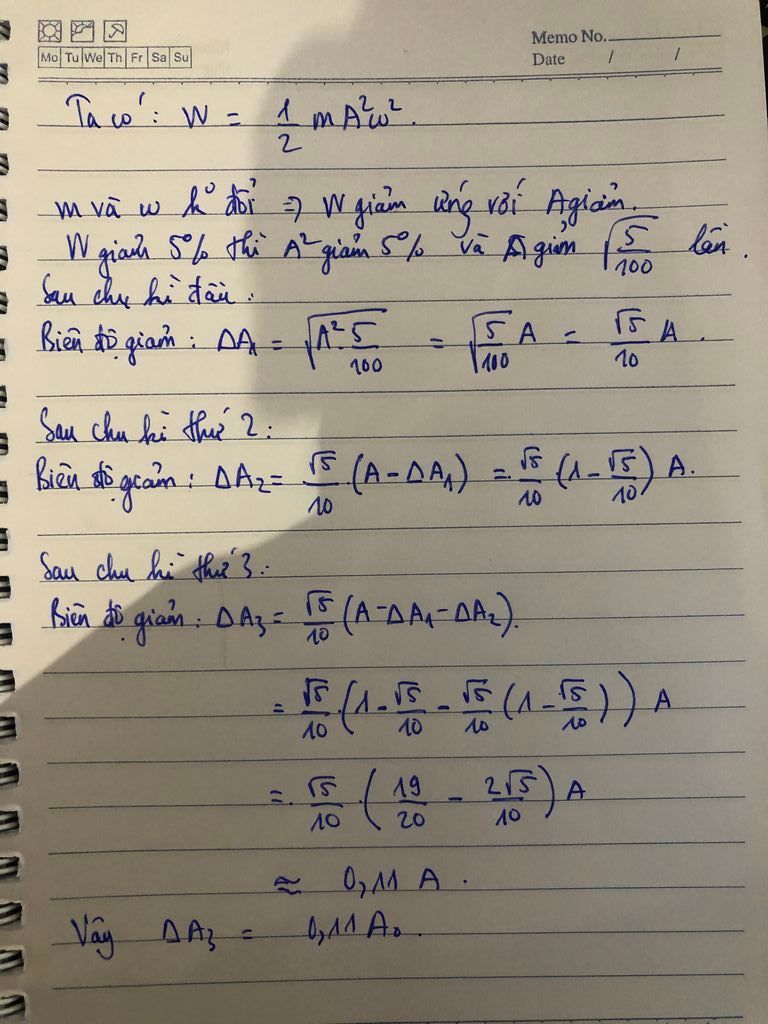 Memo No.
Mo Tu We Th Fr Sa Su
Date / /
Ta có: W = 1/2 mA²ω².
m và ω k° đổi => W giảm ứng với A giảm.
W giảm 5% thì A² giảm 5% và A giảm √(5/100) lần.
Sau chu kì đầu:
Biên độ giảm: ΔA₁ = √(A².5/100) = √(5/100) A = √5/10 A.
Sau chu kì thứ 2:
Biên độ giảm: ΔA₂ = √5/10 (A - ΔA₁) = √5/10 (1 - √5/10) A.
Sau chu kì thứ 3:
Biên độ giảm: ΔA₃ = √5/10 (A - ΔA₁ - ΔA₂).
= √5/10 (1 - √5/10 - √5/10 (1 - √5/10)) A
= √5/10 . (19/20 - 2√5/10) A
≈ 0,11 A.
Vậy ΔA₃ = 0,11 A₀.